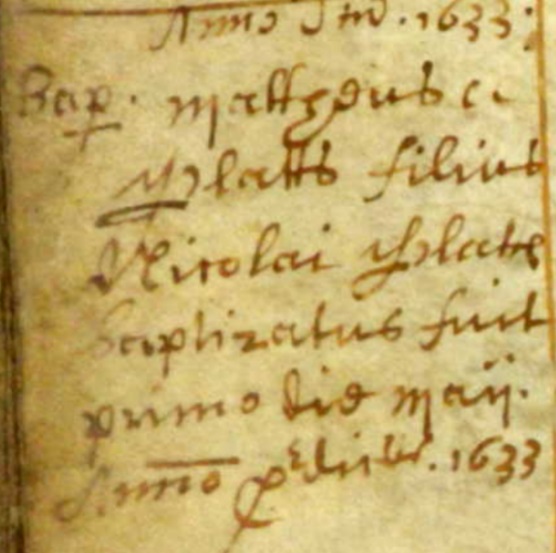 Anno Dm. 1633:
Bap. Mattheus
Platts filius
Nicolai Platts
baptizatus fuit
primo die Maij.
Anno 1633